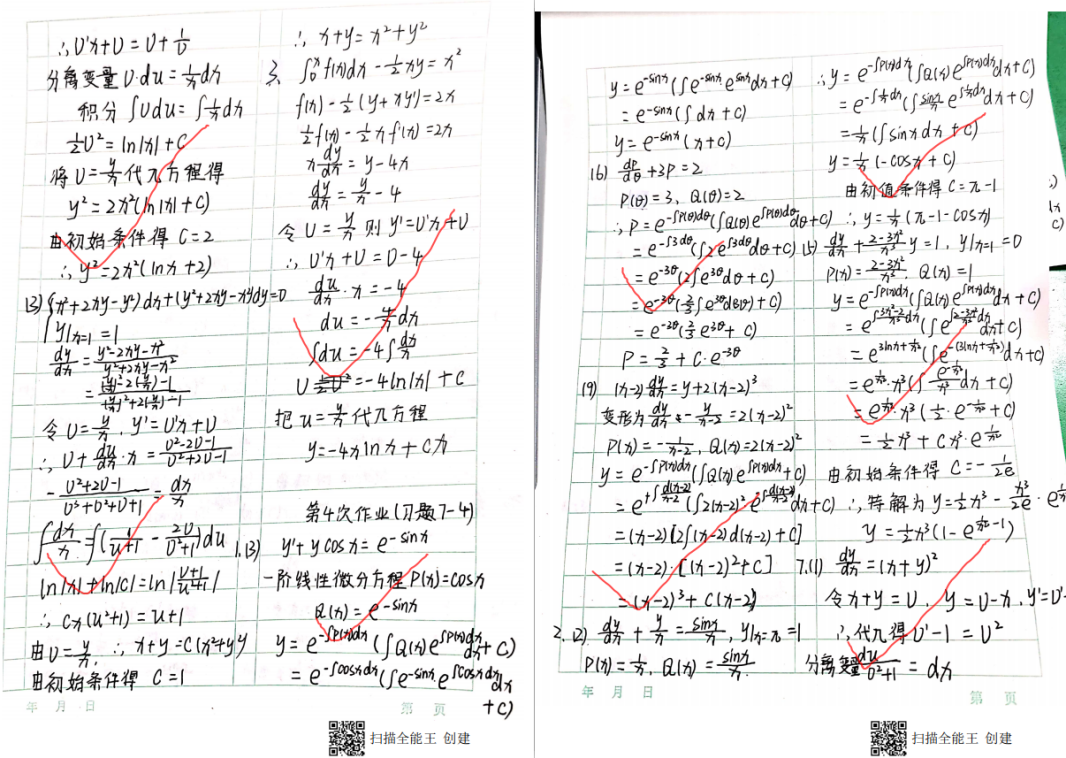 ∴ U'x+U = U+1/U
分离变量 U·du = 1/x dx
积分 ∫Udu = ∫1/x dx
1/2 U² = ln|x|+C
将 U = y/x 代入方程得
y² = 2x²(ln|x|+C)
由初始条件得 C=2
∴ y² = 2x²(lnx+2)
(3) {(x²+2xy-y²)dx+(y²+2xy-x²)dy=0
y|x=1 = 1
dy/dx = (y²-2xy-x²)/(y²+2xy-x²)
= ((y/x)²-2(y/x)-1)/((y/x)²+2(y/x)-1)
令 U = y/x, y' = U'x+U
∴ U + du/dx·x = (U²-2U-1)/(U²+2U-1)
-(U²+2U-1)/(U³+U²+U+1) = dx/x
∫dx/x = ∫(1/(u+1) - 2U/(U²+1))du
ln|x|+ln|C| = ln|(u+1)/(u²+1)|
∴ Cx(u²+1) = u+1
由 U = y/x, ∴ x+y = C(x²+y²)
由初始条件得 C=1
∴ x+y = x²+y²
3. ∫₀ˣ f(x)dx - 1/2 xy = x²
f(x) - 1/2(y+xy') = 2x
1/2 f(x) - 1/2 x f'(x) = 2x
x dy/dx = y-4x
dy/dx = y/x - 4
令 U = y/x 则 y' = U'x+U
∴ U'x+U = U-4
du/dx · x = -4
du = -4/x dx
∫du = -4∫dx/x
U = -4ln|x|+C
把 u = y/x 代入方程
y = -4x lnx + Cx
第4次作业(习题7-4)
1.(3) y'+ycosx = e^(-sinx)
一阶线性微分方程 P(x)=cosx
Q(x) = e^(-sinx)
y = e^(-∫P(x)dx) (∫Q(x)e^(∫P(x)dx)dx+C)
= e^(-∫cosxdx) (∫e^(-sinx) e^(∫cosxdx)dx
+C)
年 月 日
第 页
扫描全能王 创建
y = e^(-sinx) (∫e^(-sinx) e^(sinx)dx+C)
= e^(-sinx) (∫dx+C)
y = e^(-sinx) (x+C)
(6) dρ/dθ + 3ρ = 2
P(θ)=3, Q(θ)=2
∴ ρ = e^(-∫P(θ)dθ) (∫Q(θ)e^(∫P(θ)dθ)dθ+C)
= e^(-∫3dθ) (∫2e^(∫3dθ)dθ+C)
= e^(-3θ) (2∫e^(3θ)dθ+C)
= e^(-3θ) (2/3∫e^(3θ)d(3θ)+C)
= e^(-3θ) (2/3 e^(3θ)+C)
ρ = 2/3 + C·e^(-3θ)
(9) (x-2)dy/dx = y+2(x-2)³
变形为 dy/dx - y/(x-2) = 2(x-2)²
P(x) = -1/(x-2), Q(x)=2(x-2)²
y = e^(-∫P(x)dx) (∫Q(x)e^(∫P(x)dx)+C)
= e^(+∫d(x-2)/(x-2)) (∫2(x-2)² e^(-∫d(x-2)/(x-2))dx+C)
= (x-2)[2∫(x-2)d(x-2)+C]
= (x-2)·[(x-2)²+C]
= (x-2)³+C(x-2)
2.(2) dy/dx + y/x = sinx/x, y|x=π = 1
P(x) = 1/x, Q(x) = sinx/x
∴ y = e^(-∫P(x)dx) (∫Q(x)e^(∫P(x)dx)dx+C)
= e^(-∫1/x dx) (∫sinx/x e^(∫1/x dx)dx+C)
= 1/x (∫sinxdx+C)
y = 1/x (-cosx+C)
由初值条件得 C=π-1
∴ y = 1/x (π-1-cosx)
(5) dy/dx + (2-3x²)/x³ y = 1, y|x=1 = 0
P(x) = (2-3x²)/x³, Q(x)=1
y = e^(-∫P(x)dx) (∫Q(x)e^(∫P(x)dx)dx+C)
= e^(∫(3x²-2)/x³ dx) (∫e^(∫(2-3x²)/x³ dx)dx+C)
= e^(3lnx+1/x²) (∫e^(-(3lnx+1/x²))dx+C)
= e^(1/x²)·x³ (∫e^(-1/x²)/x³ dx+C)
= e^(1/x²)·x³ (1/2·e^(-1/x²)+C)
= 1/2 x³ + Cx³·e^(1/x²)
由初始条件得 C = -1/2e
∴ 特解为 y = 1/2 x³ - x³/2e · e^(1/x²)
y = 1/2 x³ (1-e^(1/x²-1))
7.(1) dy/dx = (x+y)²
令 x+y = U, y = U-x, y' = U'-
∴ 代入得 U'-1 = U²
分离变量 du/(U²+1) = dx
年 月 日
第 页
扫描全能王 创建